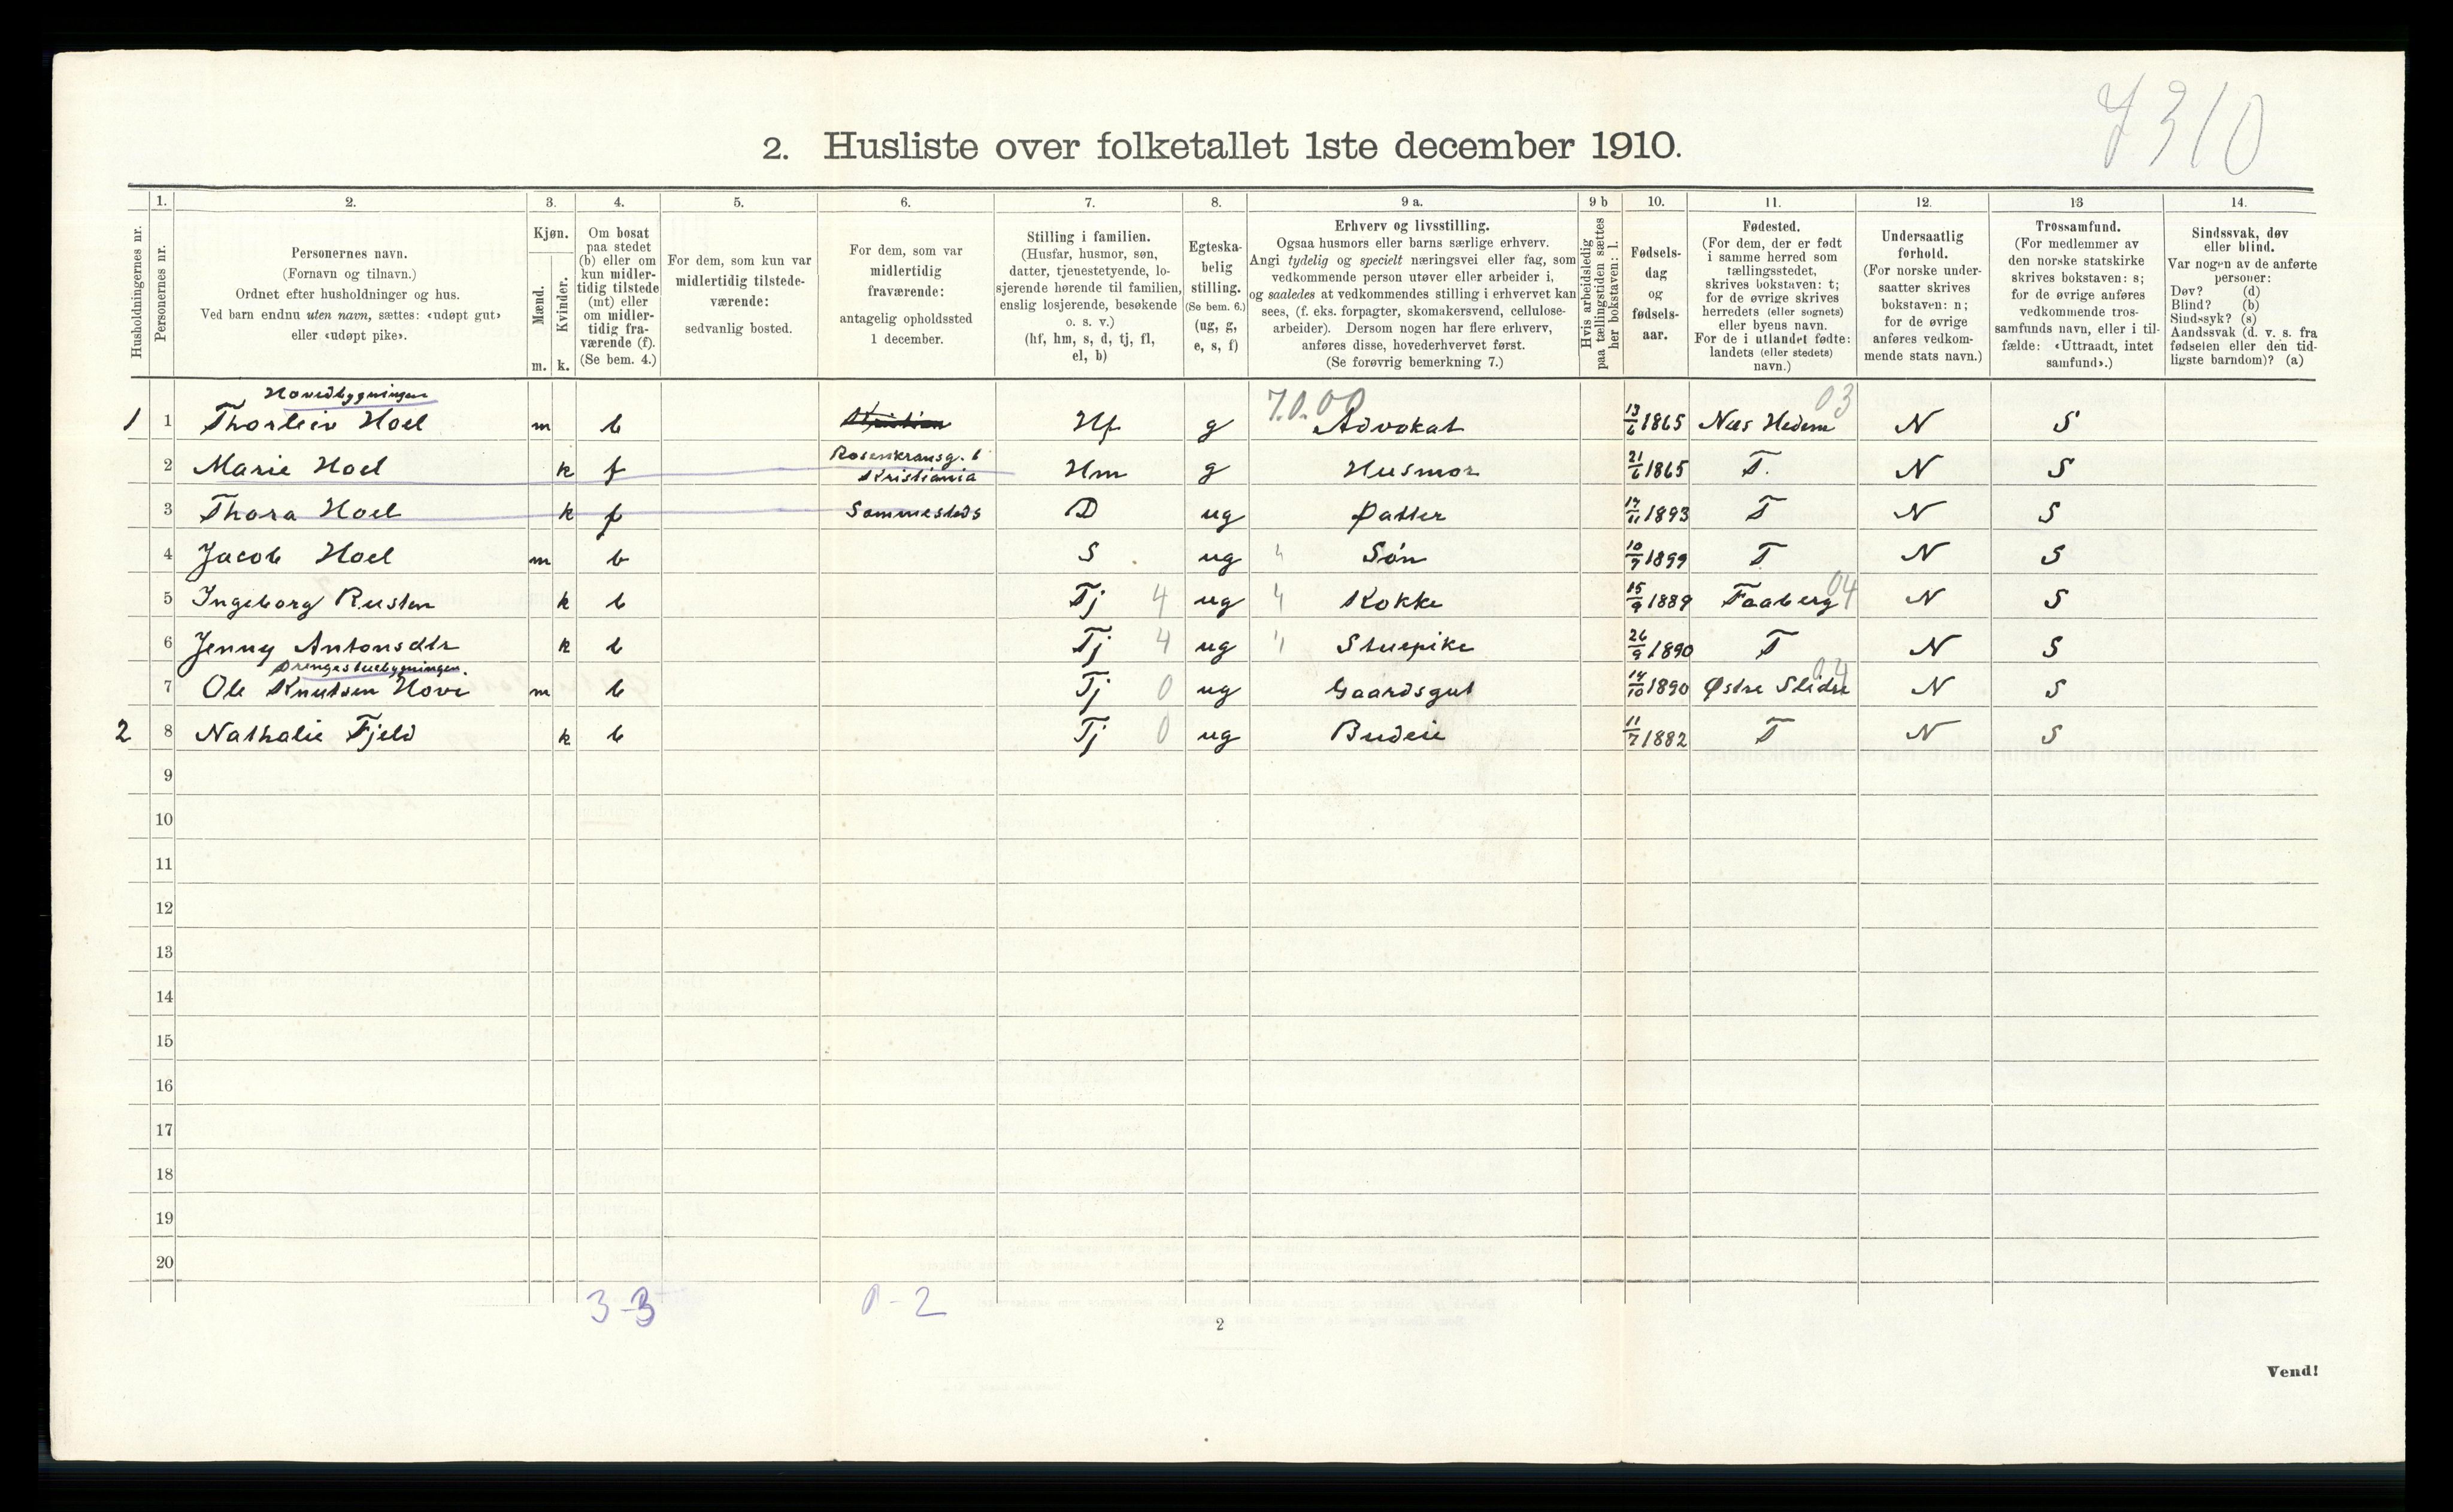 7310
2. Husliste over folketallet 1ste december 1910.
Husholdningernes nr.
1. 2. 3. 4. 5. 6. 7. 8. 9 a. 9 b 10. 11. 12. 13 14.
Personernes nr.
Personernes navn.
(Fornavn og tilnavn.)
Ordnet efter husholdninger og hus.
Ved barn endnu uten navn, sættes: «udøpt gut»
eller «udøpt pike».
Kjøn.
Mænd.
Kvinder.
m. k.
Om bosat
paa stedet
(b) eller om
kun midler-
tidig tilstede
(mt) eller
om midler-
tidig fra-
værende (f).
(Se bem. 4.)
For dem, som kun var
midlertidig tilstede-
værende:
sedvanlig bosted.
For dem, som var
midlertidig
fraværende:
antagelig opholdssted
1 december.
Stilling i familien.
(Husfar, husmor, søn,
datter, tjenestetyende, lo-
sjerende hørende til familien,
enslig losjerende, besøkende
o. s. v.)
(hf, hm, s, d, tj, fl,
el, b)
Egteska-
belig
stilling.
(Se bem. 6.)
(ug, g,
e, s, f)
Erhverv og livsstilling.
Ogsaa husmors eller barns særlige erhverv.
Angi tydelig og specielt næringsvei eller fag, som
vedkommende person utøver eller arbeider i,
og saaledes at vedkommendes stilling i erhvervet kan
sees, (f. eks. forpagter, skomakersvend, cellulose-
arbeider). Dersom nogen har flere erhverv,
anføres disse, hovederhvervet først.
(Se forøvrig bemerkning 7.)
Hvis arbeidsledig
paa tællingstiden sættes
her bokstaven: l.
Fødsels-
dag
og
fødsels-
aar.
Fødested.
(For dem, der er født
i samme herred som
tællingsstedet,
skrives bokstaven: t;
for de øvrige skrives
herredets (eller sognets)
eller byens navn.
For de i utlandet fødte:
landets (eller stedets)
navn.)
Undersaatlig
forhold.
(For norske under-
saatter skrives
bokstaven: n;
for de øvrige
anføres vedkom-
mende stats navn.)
Trossamfund.
(For medlemmer av
den norske statskirke
skrives bokstaven: s;
for de øvrige anføres
vedkommende tros-
samfunds navn, eller i til-
fælde: «Uttraadt, intet
samfund».)
Sindssvak, døv
eller blind.
Var nogen av de anførte
personer:
Døv? (d)
Blind? (b)
Sindssyk? (s)
Aandssvak (d. v. s. fra
fødselen eller den tid-
ligste barndom)? (a)
Hovedbygningen 7.0.00 03
1 1 Thorleiv Hoel m b Hf g Advokat 13/6 1865 Næs Hedem N S
2 Marie Hoel k f Rosenkransg. 6 Kristiania Hm g Husmor 21/6 1865 T. N S
3 Thora Hoel k f Sammesteds D ug Datter 17/11 1893 T N S
4 Jacob Hoel m b S ug " Søn 10/7 1899 T N S
5 Ingeborg Rusten k b Tj 4 ug " Kokke 15/9 1889 Faaberg 04 N S
6 Jenny Antonsdtr k b Tj 4 ug " Stuepike 26/9 1890 T N S
Drengestuebygningen 04
7 Ole Knutsen Hovi m b Tj 0 ug Gaardsgut 14/10 1890 Østre Slidre N S
2 8 Nathalie Fjeld k b Tj 0 ug Budeie 11/7 1882 T N S
9
10
11
12
13
14
15
16
17
18
19
20
3-3 0-2
2
Vend!